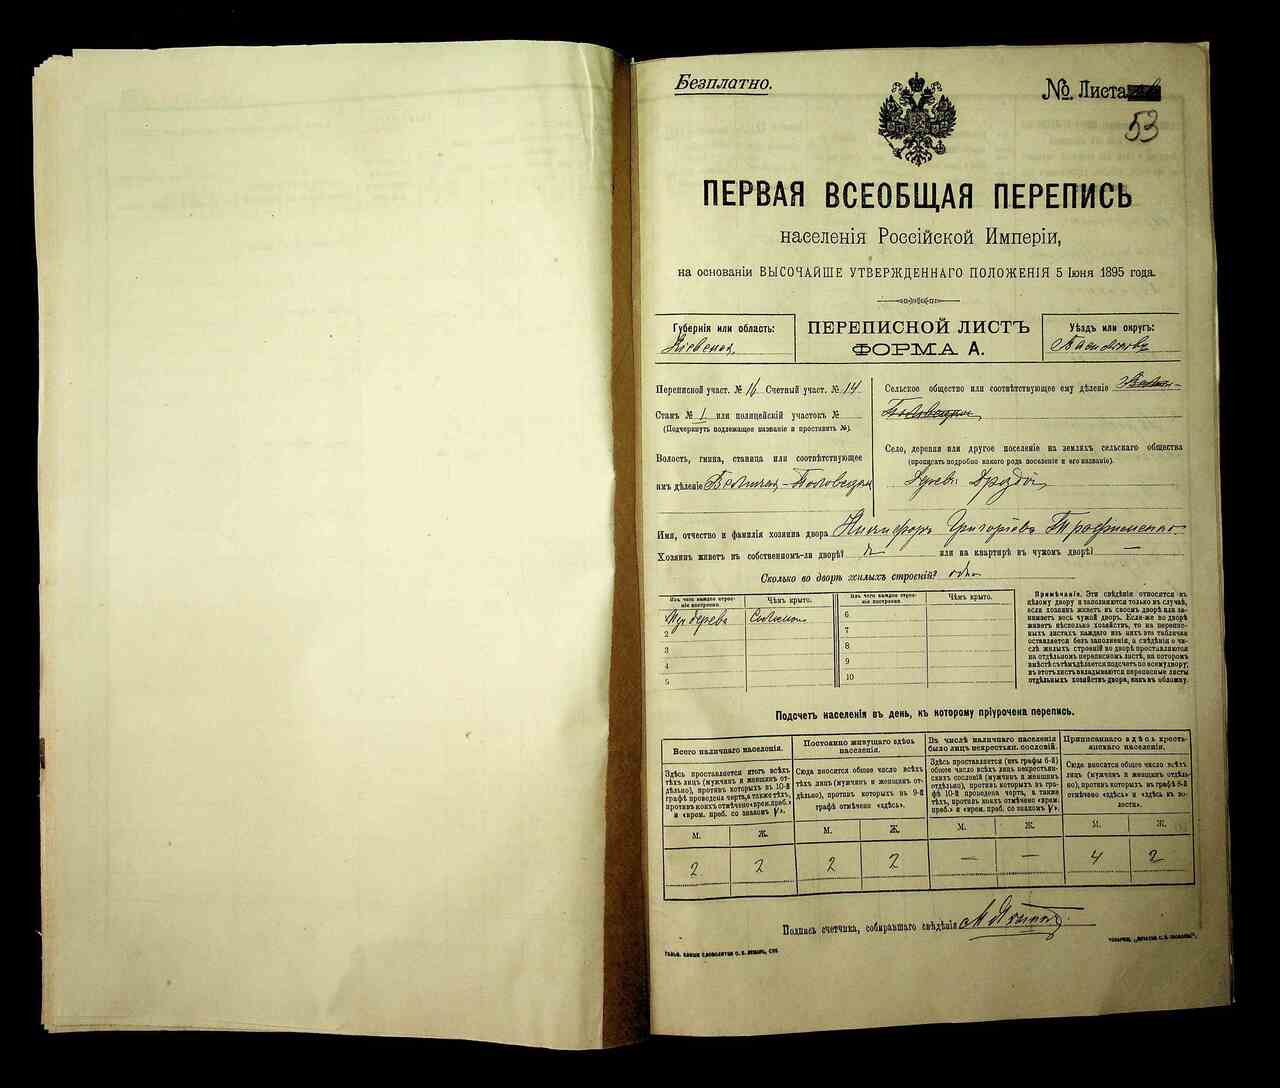 Безплатно.
№. Листа
53
ПЕРВАЯ ВСЕОБЩАЯ ПЕРЕПИСЬ
населенія Россійской Имперіи,
на основаніи ВЫСОЧАЙШЕ УТВЕРЖДЕННАГО ПОЛОЖЕНІЯ 5 Іюня 1895 года.
Губернія или область:
Кіевская
ПЕРЕПИСНОЙ ЛИСТЪ
ФОРМА А.
Уѣздъ или округъ:
Переписной участ. № 16 Счетный участ. № 14
Станъ № 1 или полицейскій участокъ №
(Подчеркнуть подлежащее названіе и проставить №).
Волость, гмина, станица или соотвѣтствующее
имъ дѣленіе
Сельское общество или соотвѣтствующее ему дѣленіе
Село, деревня или другое поселеніе на земляхъ сельскаго общества
(прописать подробно какого рода поселеніе и его названіе).
Имя, отчество и фамилія хозяина двора Никифоръ Григорьевъ Трофименко
Хозяинъ живетъ въ собственномъ-ли дворѣ? да или на квартирѣ въ чужомъ дворѣ? —
Сколько во дворѣ жилыхъ строеній? одно
Изъ чего каждое строе-
ніе построено.
Чѣмъ крыто.
Изъ чего каждое строе-
ніе построено.
Чѣмъ крыто.
Изъ дерева Соломою
2
3
4
5
6
7
8
9
10
Примѣчаніе. Эти свѣдѣнія относятся къ
цѣлому двору и заполняются только въ случаѣ,
если хозяинъ живетъ въ своемъ дворѣ или за-
нимаетъ весь чужой дворъ. Если-же во дворѣ
живетъ нѣсколько хозяйствъ, то на перепис-
ныхъ листахъ каждаго изъ нихъ эта табличка
оставляется безъ заполненія, а свѣдѣнія о чи-
слѣ жилыхъ строеній во дворѣ проставляются
на отдѣльномъ переписномъ листѣ, на которомъ
вмѣстѣ съ тѣмъ дѣлается подсчетъ по всему двору;
въ этотъ листъ вкладываются переписные листы
отдѣльныхъ хозяйствъ двора, какъ въ обложку.
Подсчетъ населенія въ день, къ которому пріурочена перепись.
Всего наличнаго населенія.
Здѣсь проставляется итогъ всѣхъ
тѣхъ лицъ (мужчинъ и женщинъ от-
дѣльно), противъ которыхъ въ 10-й
графѣ проведена черта, а также тѣхъ,
противъ коихъ отмѣчено «врем. преб.»
и «врем. преб. со знакомъ V».
Постоянно живущаго здѣсь
населенія.
Сюда вносится общее число всѣхъ
тѣхъ лицъ (мужчинъ и женщинъ от-
дѣльно), противъ которыхъ въ 9-й
графѣ отмѣчено «здѣсь».
Въ числѣ наличнаго населенія
было лицъ некрестьян. сословій.
Здѣсь проставляется (изъ графы 6-й)
общее число всѣхъ лицъ некрестьян-
скихъ сословій (мужчинъ и женщинъ
отдѣльно), противъ которыхъ въ гра-
фѣ 10-й проведена черта, а также
тѣхъ, противъ коихъ отмѣчено «врем.
преб.» и «врем. преб. со знакомъ V».
Приписаннаго здѣсь кресть-
янскаго населенія.
Сюда вносится общее число всѣхъ
лицъ (мужчинъ и женщинъ отдѣль-
но), противъ которыхъ въ графѣ 8-й
отмѣчено «здѣсь» и «здѣсь въ во-
лости».
М. Ж. М. Ж. М. Ж. М. Ж.
2 2 2 2 — — 4 2
Подпись счетчика, собиравшаго свѣдѣнія